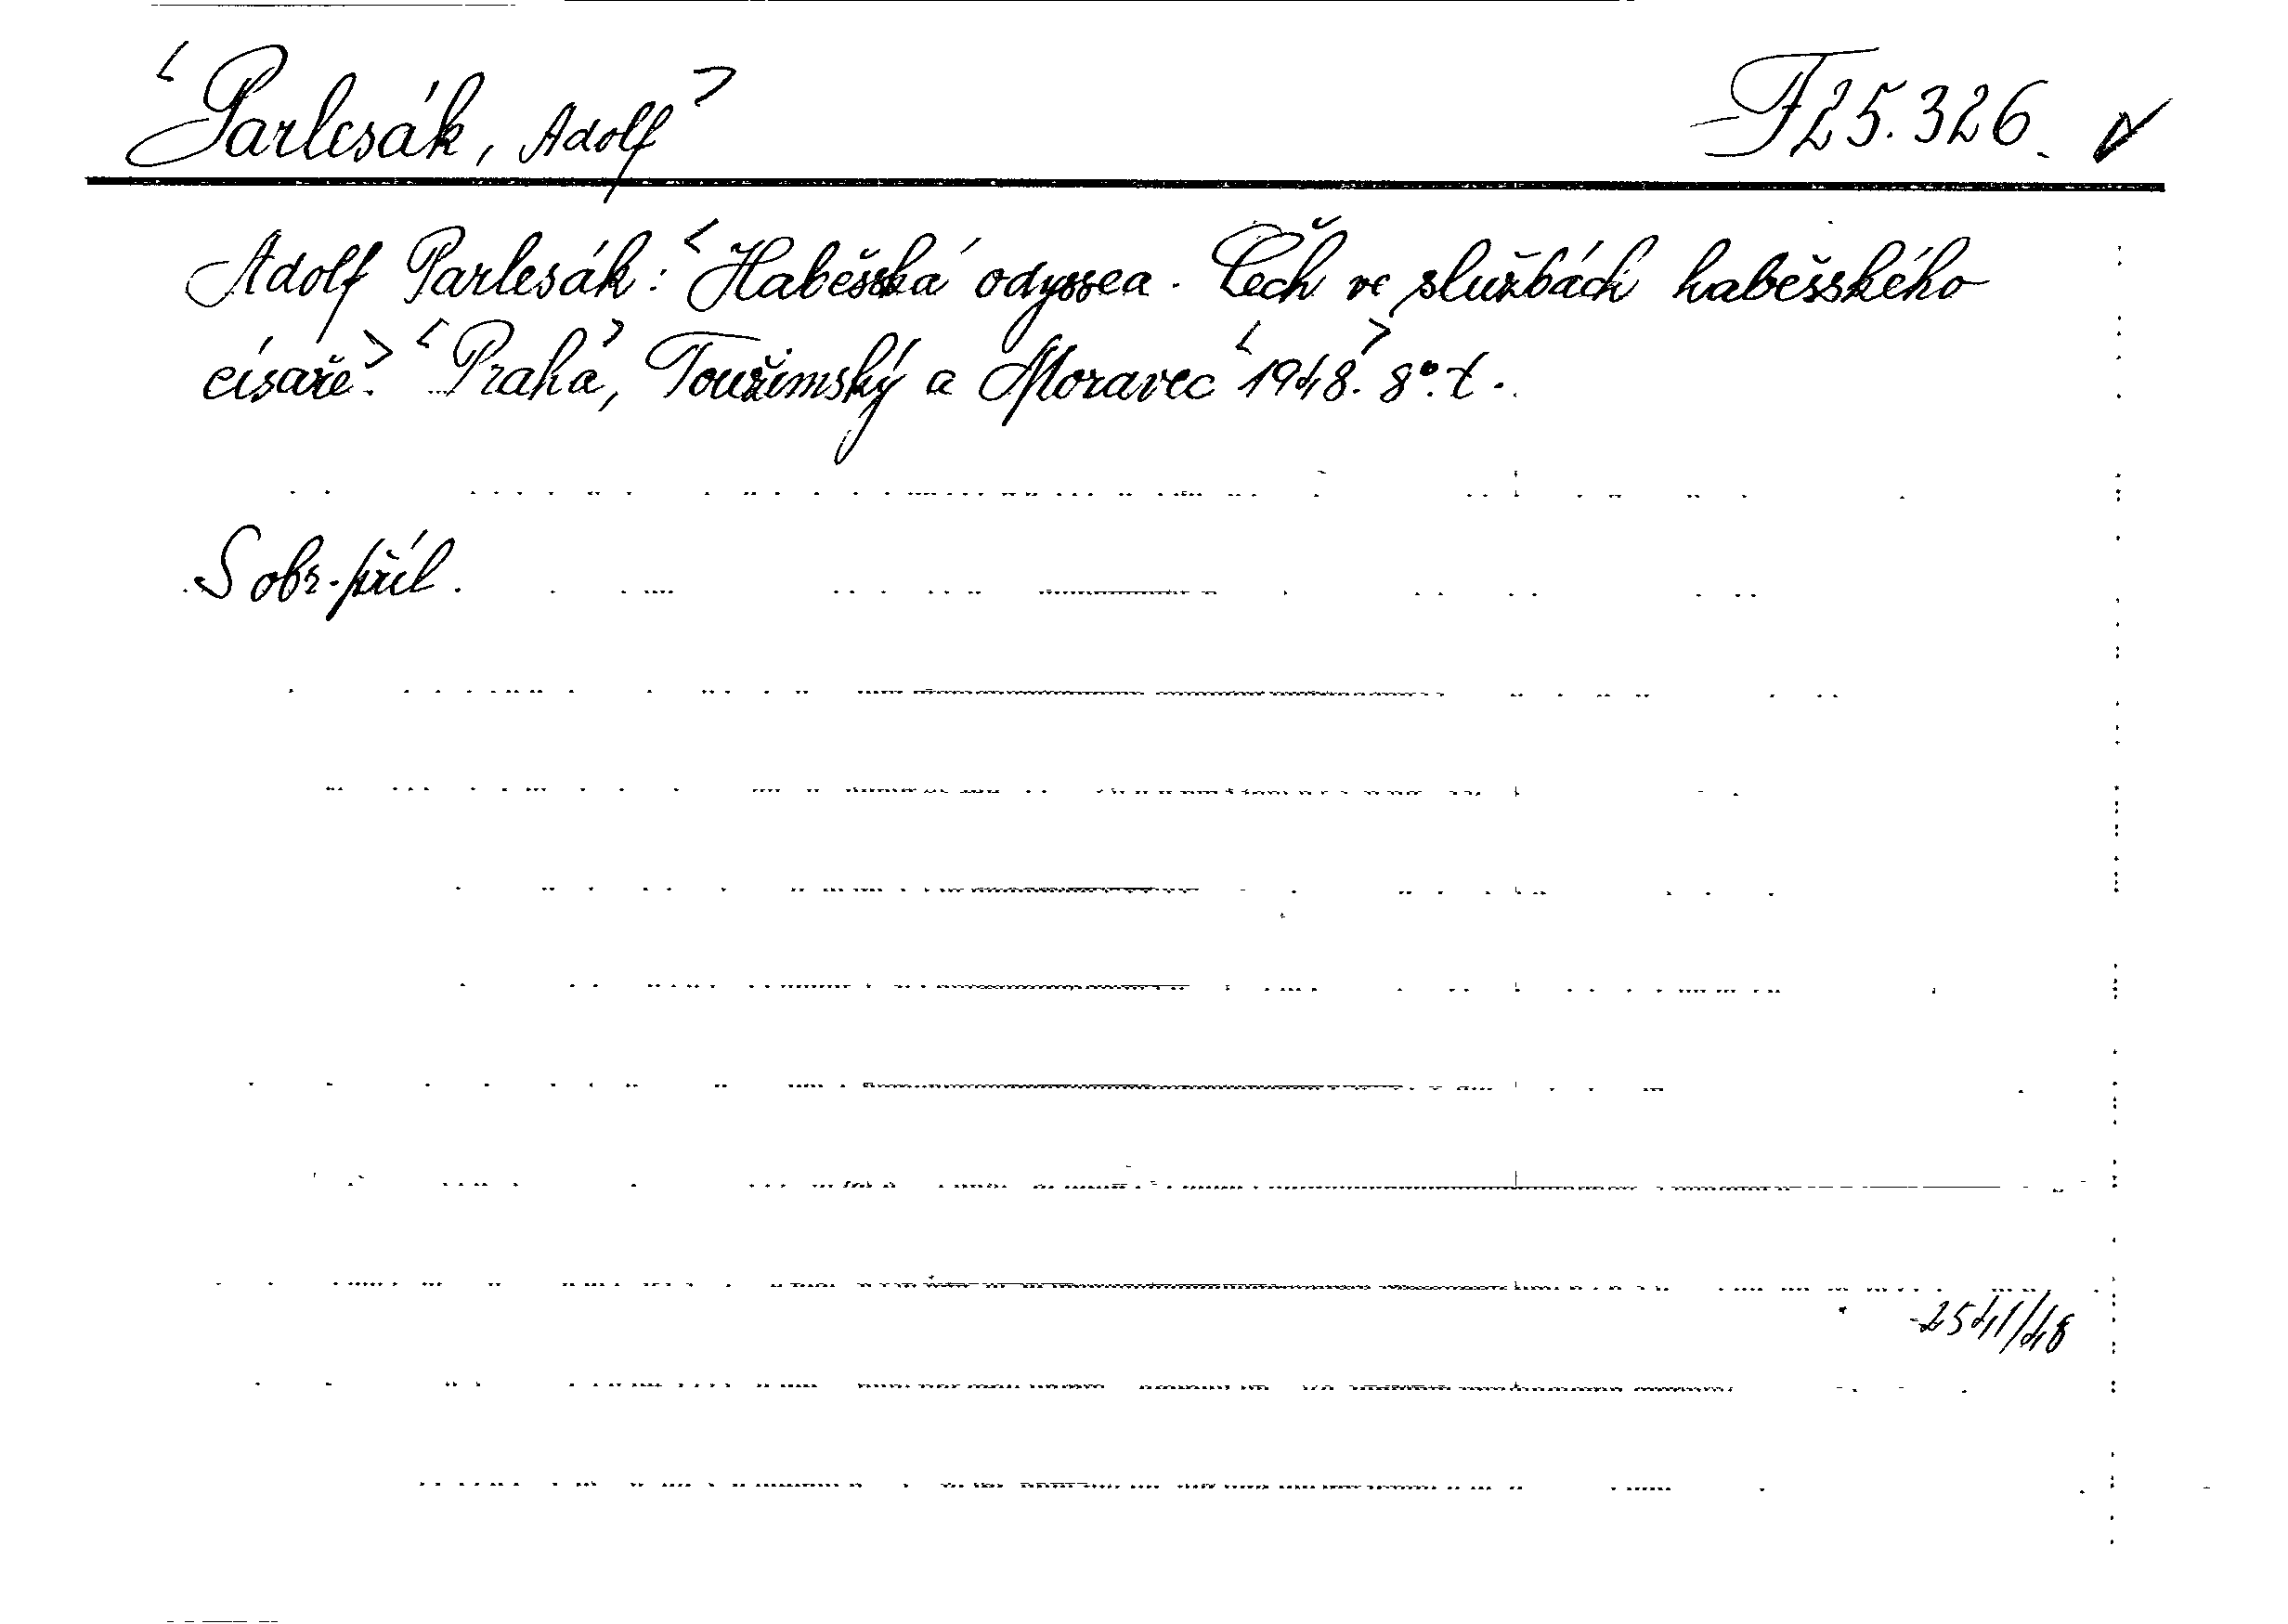 <Parlesák, Adolf> F 25.326.
Adolf Parlesák: <Habešská odyssea. Čech ve službách habešského
císaře.> <Praha>, Toužimský a Moravec <1948.> 8°. t.
S obr. příl.
2541/48